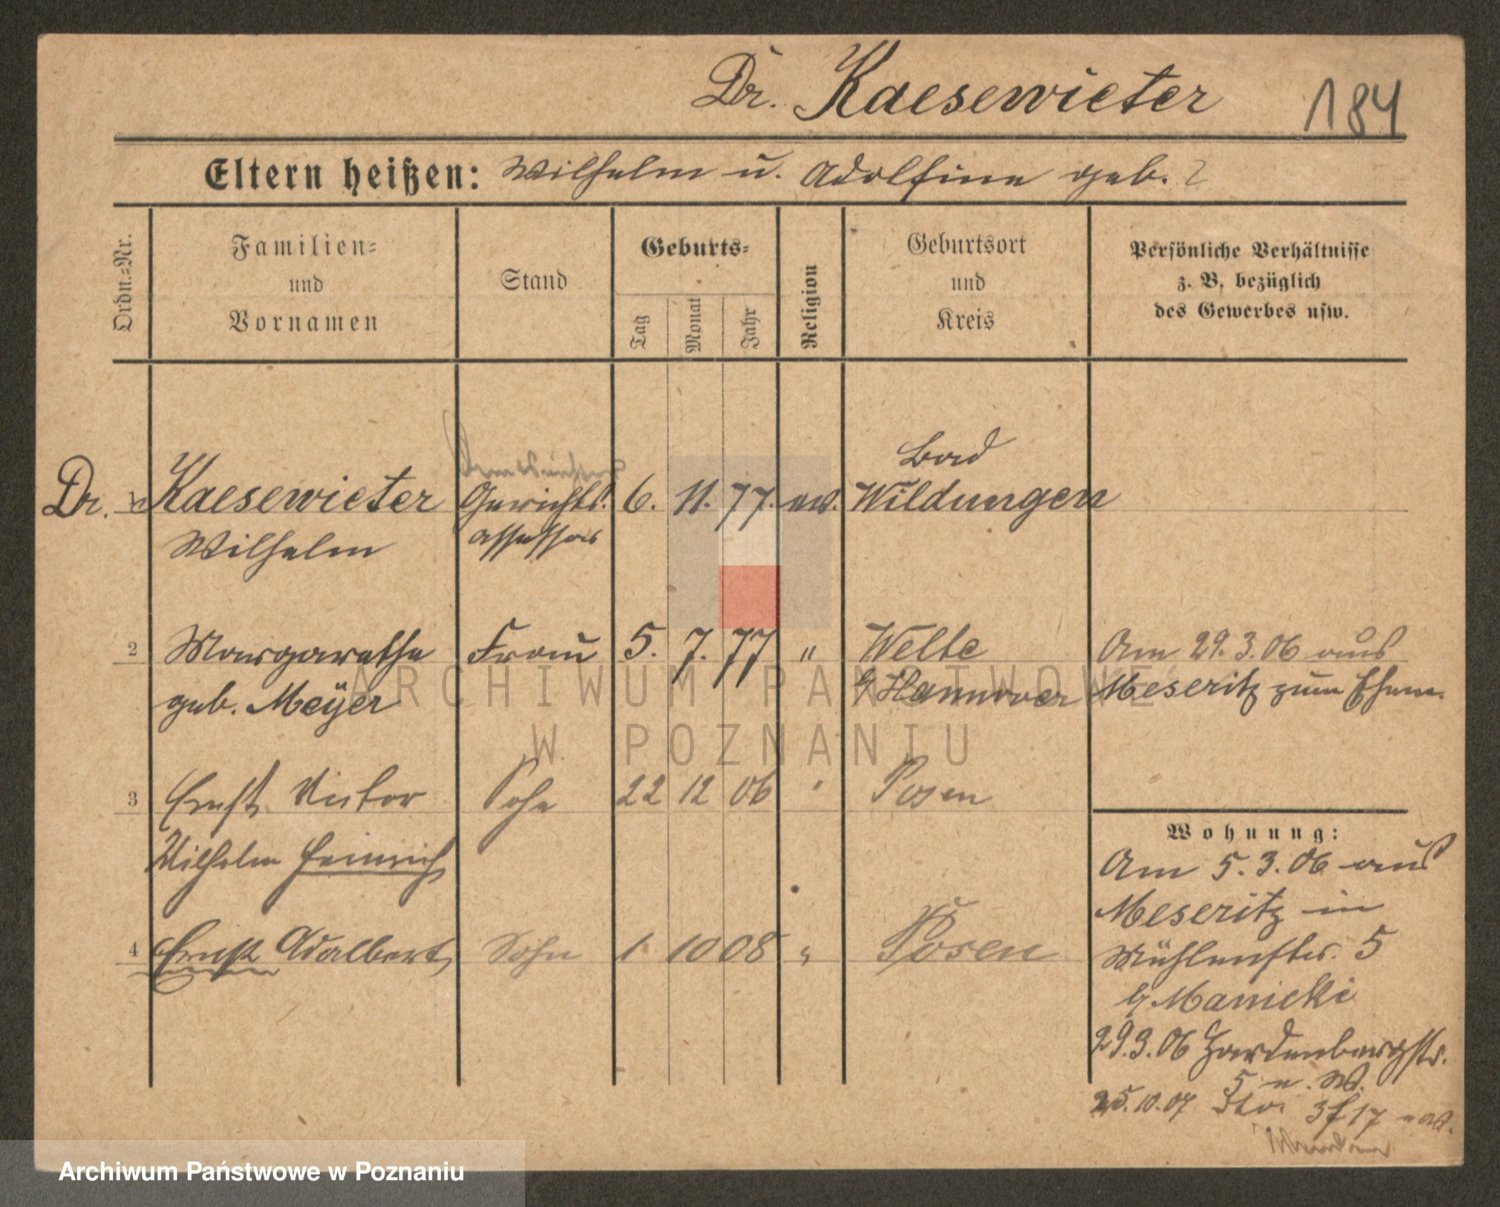 Dr. Kaesewieter 184
Eltern heißen: Wilhelm u. Adolfine geb. ?
Ordn.-Nr.
Familien- und Vornamen
Stand
Geburts-
Tag
Monat
Jahr
Religion
Geburtsort und Kreis
Persönliche Verhältnisse
z. B. bezüglich
des Gewerbes usw.
Dr. 1 Kaesewieter Gerichts- 6. 11. 77. ev. Bad Wildungen
Wilhelm assessor
2 Margarethe Frau 5. 7. 77 " Welte Am 29.3.06 aus
geb. Meÿer b/Hannover Meseritz zum Ehem.
3 Ernst Victor Sohn 22 12 06 " Posen
Wilhelm Heinrich
4 Ernst Adalbert Sohn 1 10 08 " Posen
Wohnung:
Am 5.3.06 aus
Meseritz in
Mühlenstr. 5
b/Manicki
29.3.06 Hardenbergstr.
5 n. W.
25.10.07 5
ARCHIWUM PAŃSTWOWE
W POZNANIU
Archiwum Państwowe w Poznaniu